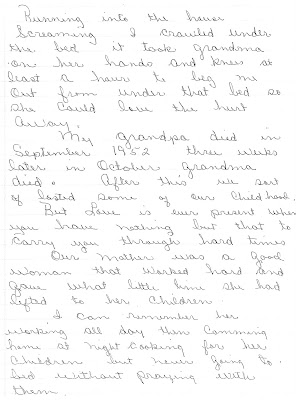 Running into the house
Screaming I crawled under
the bed it took grandma
on her hands and knees at
least a hour to beg me
out from under that bed so
she could love the hurt
away.
My grandpa died in
September 1952 three weeks
later in October grandma
died. After this we sort
of losted some of our childhood.
But Love is ever present when
you have nothing but that to
carry you through hard times
Our mother was a good
woman that worked hard and
gave what little time she had
lefted to her children.
I can remember her
working all day than comming
home at night cooking for her
children but never going to
bed without praying with
them.